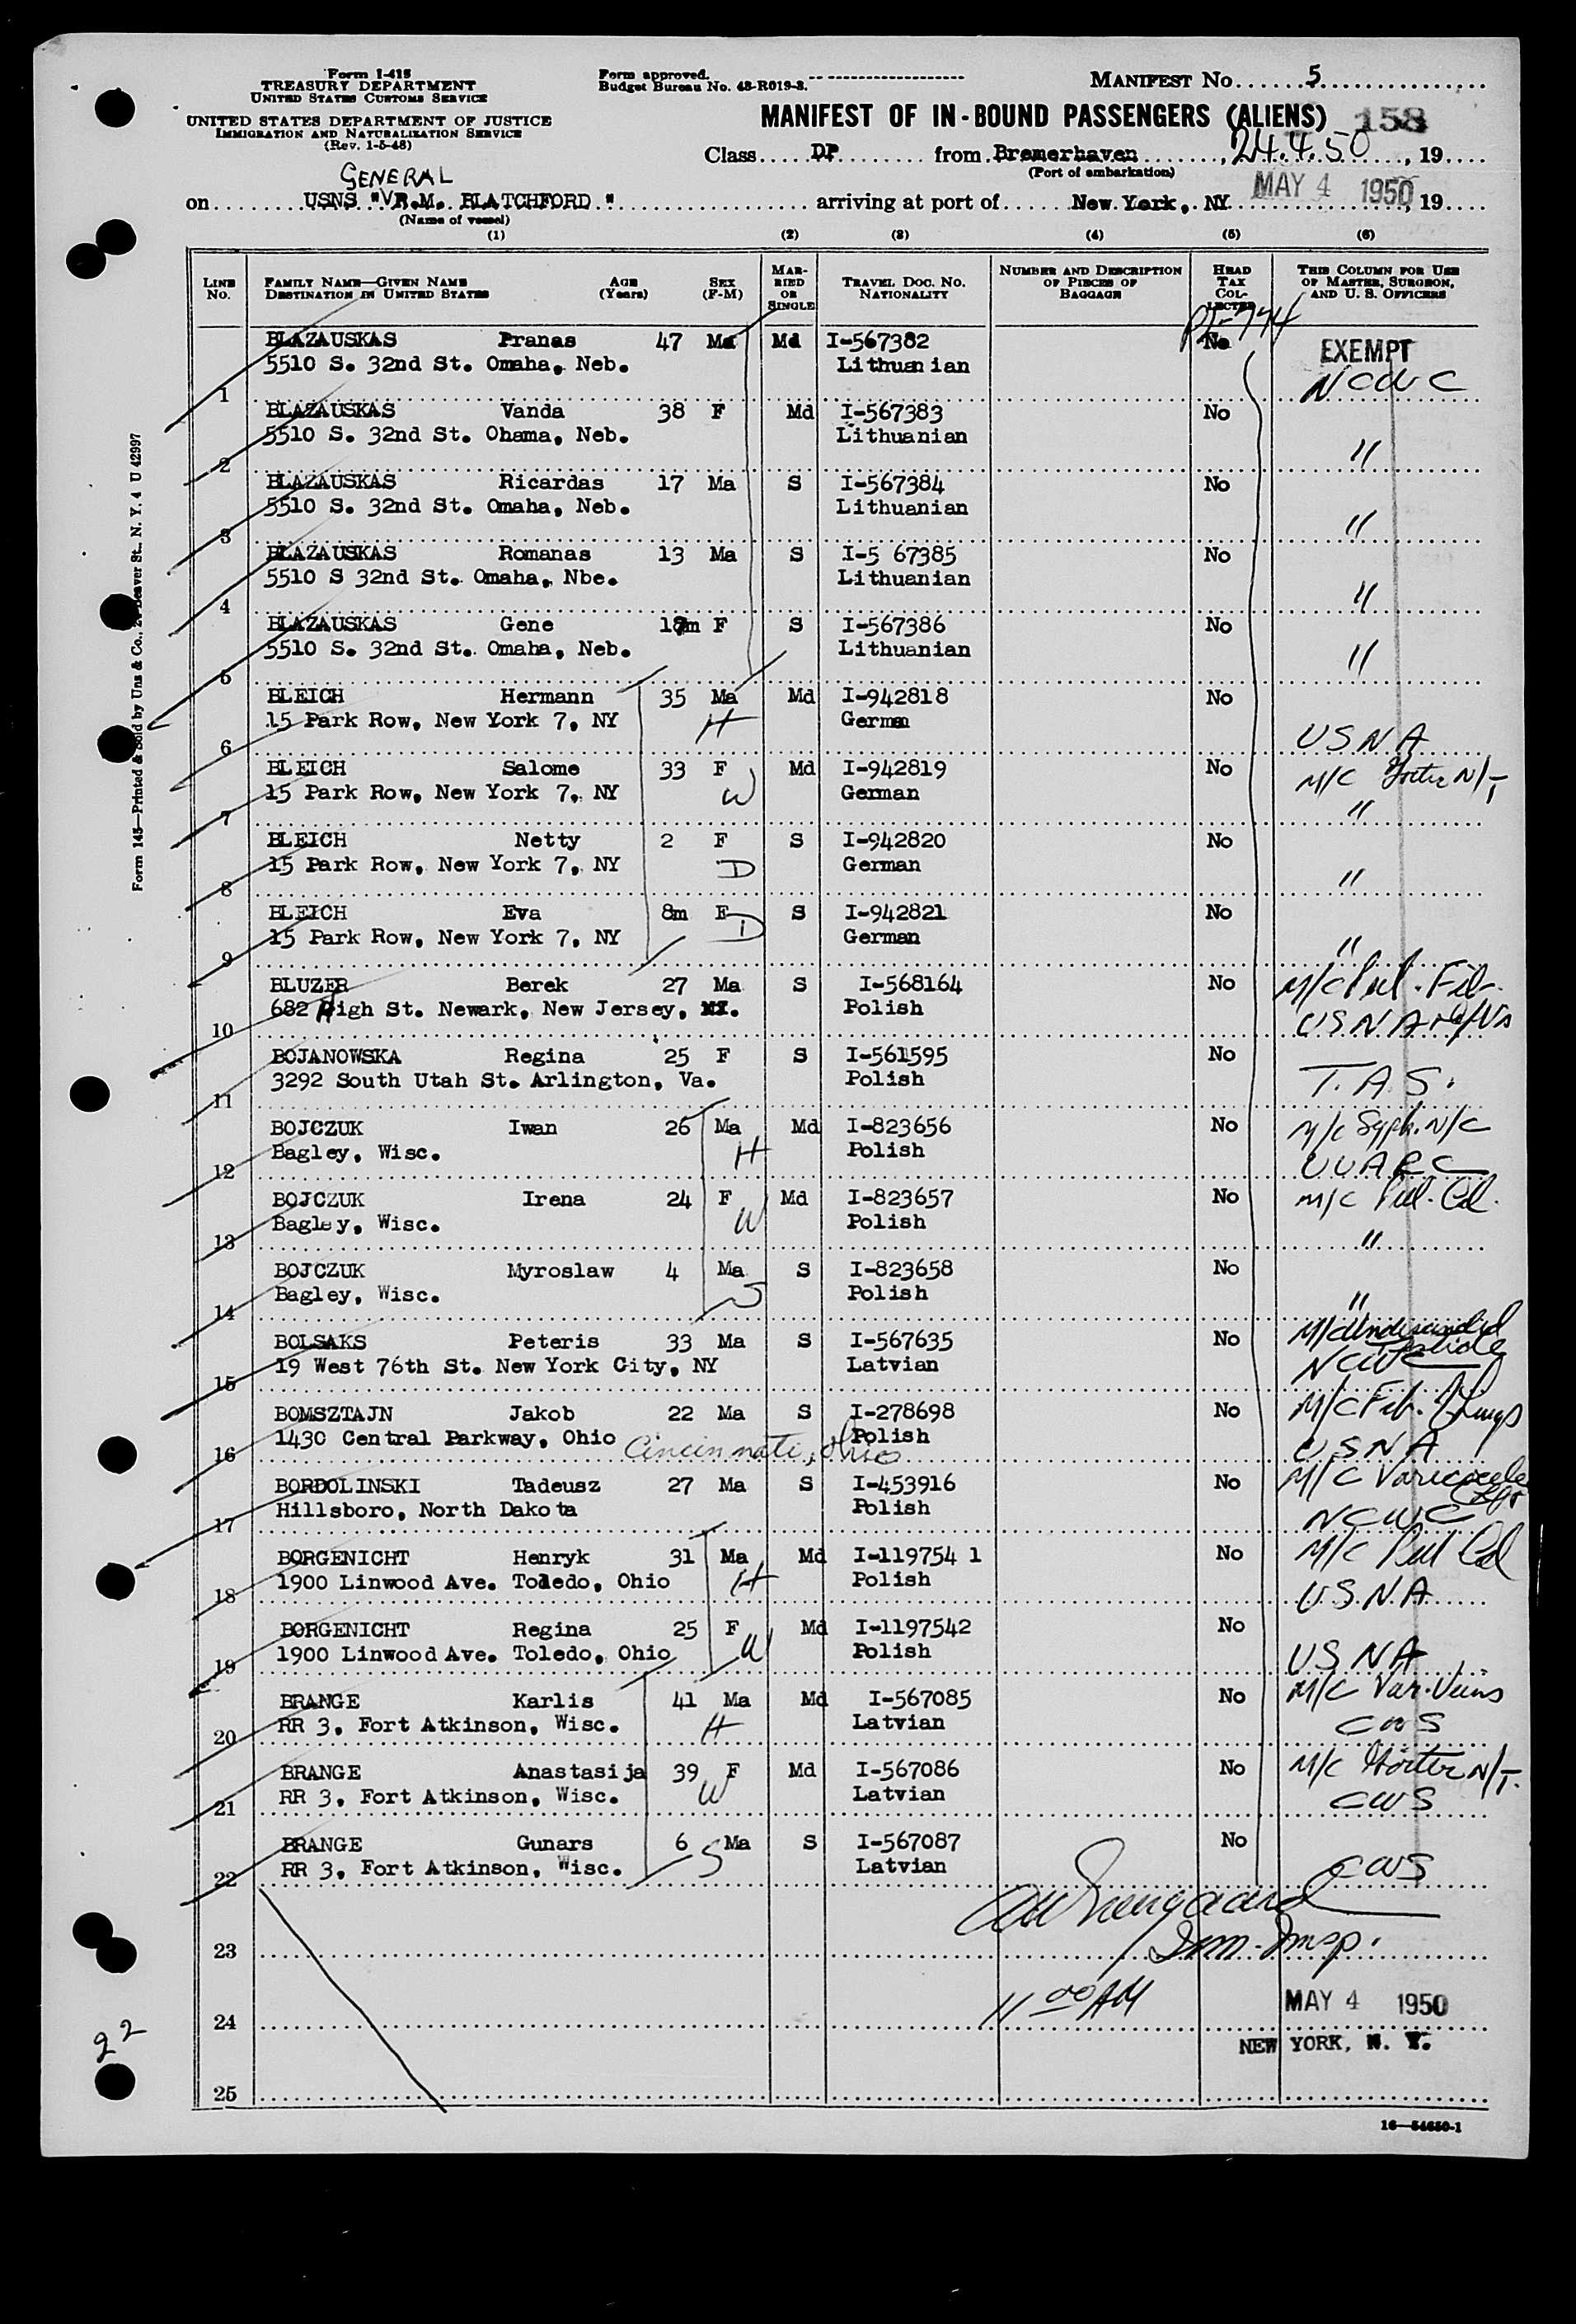 Form I-415
TREASURY DEPARTMENT
UNITED STATES CUSTOMS SERVICE
UNITED STATES DEPARTMENT OF JUSTICE
IMMIGRATION AND NATURALIZATION SERVICE
(Rev. 1-5-48)
Form approved.
Budget Bureau No. 43-R019-3.
MANIFEST No. 5
MANIFEST OF IN-BOUND PASSENGERS (ALIENS) 158
Class DP from Bremerhaven, 24.4.50, 19
(Port of embarkation)
GENERAL
on USNS "R.M. BLATCHFORD" arriving at port of New York, NY MAY 4 1950, 19
(Name of vessel)
(1) (2) (3) (4) (5) (6)
LINE No.
FAMILY NAME—GIVEN NAME
DESTINATION IN UNITED STATES
AGE (Years)
SEX (F-M)
MARRIED OR SINGLE
TRAVEL DOC. NO.
NATIONALITY
NUMBER AND DESCRIPTION OF PIECES OF BAGGAGE
HEAD TAX COLLECTED
THIS COLUMN FOR USE OF MASTER, SURGEON, AND U. S. OFFICERS
BLAZAUSKAS Pranas 47 Ma Md I-567382 No EXEMPT
1 5510 S. 32nd St. Omaha, Neb. Lithuanian NCWC
BLAZAUSKAS Vanda 38 F Md I-567383 No
2 5510 S. 32nd St. Ohama, Neb. Lithuanian "
BLAZAUSKAS Ricardas 17 Ma S I-567384 No
3 5510 S. 32nd St. Omaha, Neb. Lithuanian "
BLAZAUSKAS Romanas 13 Ma S I-5 67385 No
4 5510 S 32nd St. Omaha, Nbe. Lithuanian "
BLAZAUSKAS Gene F S I-567386 No
5 5510 S. 32nd St. Omaha, Neb. Lithuanian "
BLEICH Hermann 35 Ma Md I-942818 No
6 15 Park Row, New York 7, NY H German USNA
BLEICH Salome 33 F Md I-942819 No M/C N/T
7 15 Park Row, New York 7, NY W German "
BLEICH Netty 2 F S I-942820 No
8 15 Park Row, New York 7, NY D German "
BLEICH Eva 8m F S I-942821 No
9 15 Park Row, New York 7, NY D German "
BLUZER Berek 27 Ma S I-568164 No M/C Pul. Fib.
10 682 High St. Newark, New Jersey, Polish USNA
BOJANOWSKA Regina 25 F S I-561595 No
11 3292 South Utah St. Arlington, Va. Polish T.A.S.
BOJCZUK Iwan 26 Ma Md I-823656 No M/C Syph. N/C
12 Bagley, Wisc. H Polish UUARC
BOJCZUK Irena 24 F Md I-823657 No M/C Pul. Cal.
13 Bagley, Wisc. W Polish "
BOJCZUK Myroslaw 4 Ma S I-823658 No
14 Bagley, Wisc. S Polish "
BOLSAKS Peteris 33 Ma S I-567635 No M/C Undescended Testicle
15 19 West 76th St. New York City, NY Latvian NCWC
BOMSZTAJN Jakob 22 Ma S I-278698 No M/C Fib. Lungs
16 1430 Central Parkway, Ohio Cincinnati, Ohio Polish USNA
BORDOLINSKI Tadeusz 27 Ma S I-453916 No M/C Varicocele
17 Hillsboro, North Dakota Polish NCWC
BORGENICHT Henryk 31 Ma Md I-119754 1 No M/C Pul Cal
18 1900 Linwood Ave. Toledo, Ohio H Polish U.S.N.A.
BORGENICHT Regina 25 F Md I-1197542 No
19 1900 Linwood Ave. Toledo, Ohio W Polish USNA
BRANGE Karlis 41 Ma Md I-567085 No M/C Var. Veins
20 RR 3, Fort Atkinson, Wisc. H Latvian CWS
BRANGE Anastasija 39 F Md I-567086 No M/C N/T.
21 RR 3, Fort Atkinson, Wisc. W Latvian CWS
BRANGE Gunars 6 Ma S I-567087 No
22 RR 3, Fort Atkinson, Wisc. S Latvian CWS
23 Imm. Insp.
24 11 00 AM MAY 4 1950
NEW YORK, N. Y.
25
16—54650-1
22
Form 145—Printed & Sold by Unz & Co., 24 Beaver St., N. Y. 4 U 42997